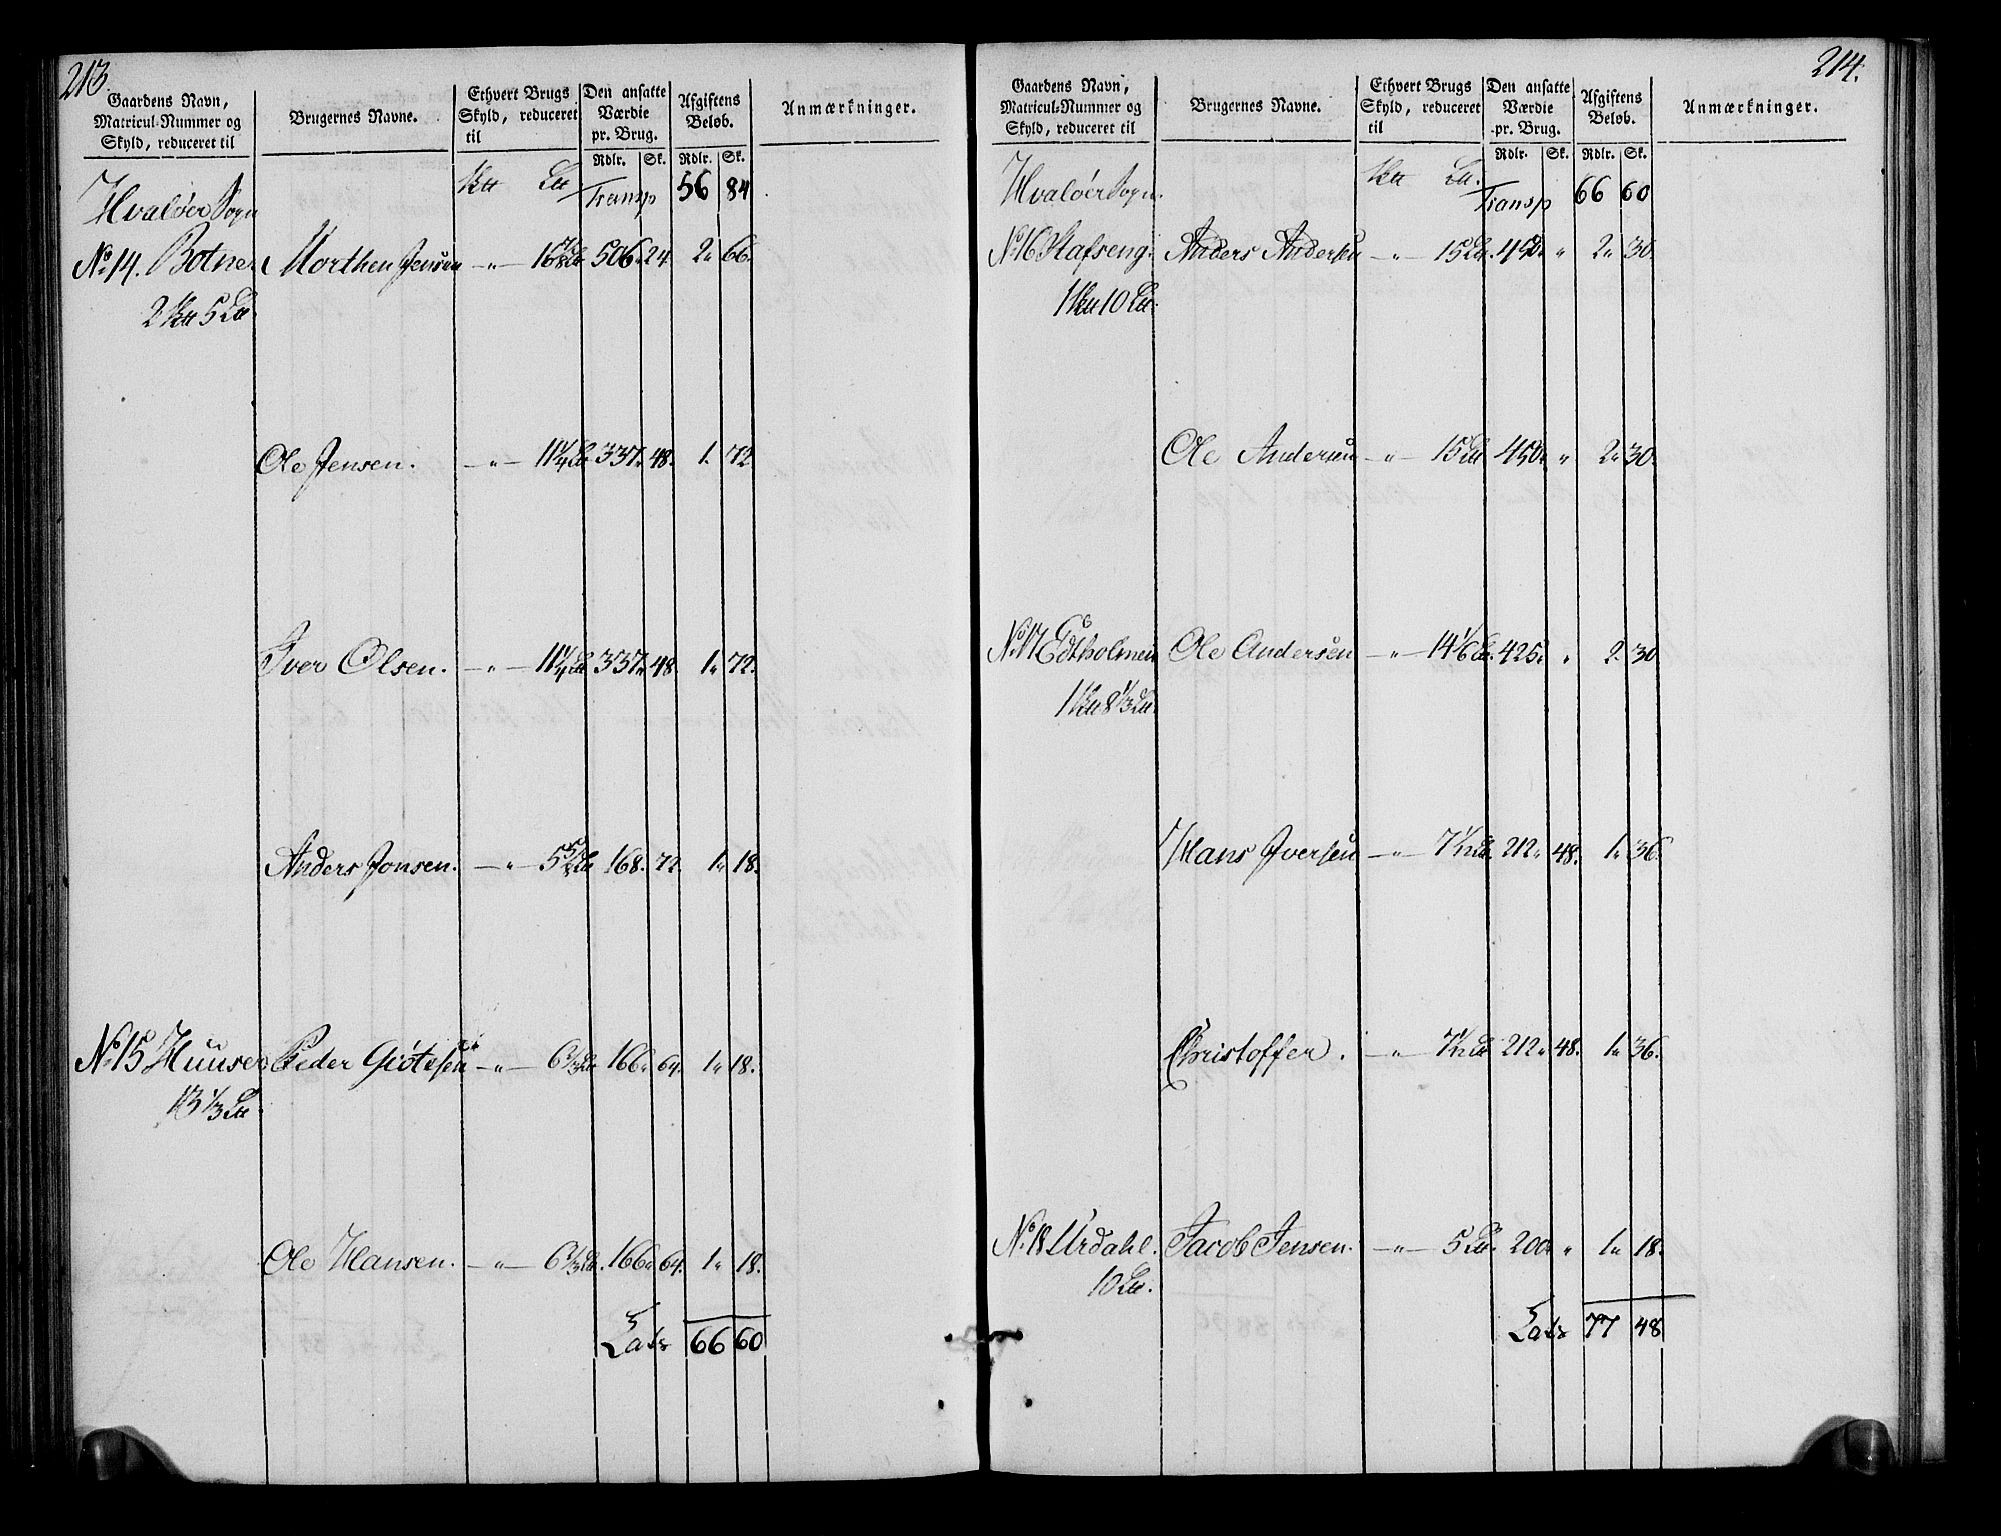 213.
Gaardens Navn, Matricul-Nummer og Skyld, reduceret til
Brugernes Navne.
Ethvert Brugs Skyld, reduceret til
Den ansatte Værdie pr. Brug.
Afgiftens Beløb.
Anmærkninger.
Rdlr. Sk. Rdlr. Sk.
Hvaløer Sogn Transp 56 84
No. 14. Botner Morthen Jensen -"- 506. 24 2. 66.
Ole Jensen. -"- 11 1/4 337. 48. 1. 72
Iver Olsen. -"- 11 1/4 337. 48. 1. 72.
Anders Jonsen. -"- 168. 72. 1. 18.
No. 15 Huuser Peder -"- 6 2/3 166. 64. 1. 18.
13 1/3
Ole Hansen. -"- 6 2/3 166. 64. 1. 18.
Lats 66 60
214.
Gaardens Navn, Matricul-Nummer og Skyld, reduceret til
Brugernes Navne.
Ethvert Brugs Skyld, reduceret til
Den ansatte Værdie pr. Brug.
Afgiftens Beløb.
Anmærkninger.
Rdlr. Sk. Rdlr. Sk.
Hvaløer Sogn. Transp 66 60
No. 16 Anders Andersen -"- 15 450. " 2. 30.
Ole Andersen -"- 15 450. " 2. 30.
No. 17 Edtholmen Ole Andersen -"- 14 1/6 425. " 2. 30
Hans Iversen -"- 7 1/12 212. 48. 1. 36.
Christoffer. -"- 7 1/12 212. 48. 1. 36.
No. 18 Urdahl. Jacob Jensen. -"- 5 200. " 1. 18.
Lats 77 48